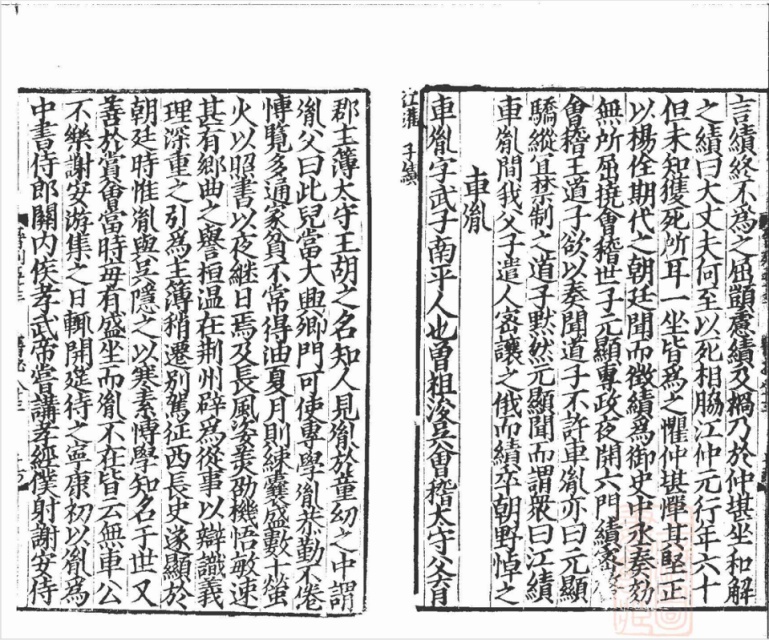 言績終不爲之屈顗慮績及禍乃於仲堪坐和解
之績曰大丈夫何至以死相脇江仲元行年六十
但未知獲死所耳一坐皆爲之懼仲堪憚其堅正
以楊佺期代之朝廷聞而徴績爲御史中丞奏劾
無所屈撓會稽世子元顯專政夜開六門績密
會稽王道子欲以奏聞道子不許車胤亦曰元顯
驕縱宜禁制之道子默然元顯聞而謂衆曰江績
車胤間我父子遣人密讓之俄而績卒朝野悼之
車胤
車胤字武子南平人也曾祖浚吳會稽太守父育
江灌 子績
郡主簿太守王胡之名知人見胤於童幼之中謂
胤父曰此兒當大興卿門可使專學胤恭勤不倦
博覽多通家貧不常得油夏月則練囊盛數十螢
火以照書以夜継日焉及長風姿美劭機悟敏速
甚有鄉曲之譽桓温在荆州辟爲從事以辯識義
理深重之引爲主簿稍遷別駕征西長史遂顯於
朝廷時惟胤與吳隱之以寒素博學知名于世又
善於賞會當時毎有盛坐而胤不在皆云無車公
不樂謝安游集之日輒開筵待之寧康初以胤爲
中書侍郎關內侯孝武帝嘗講孝經僕射謝安侍